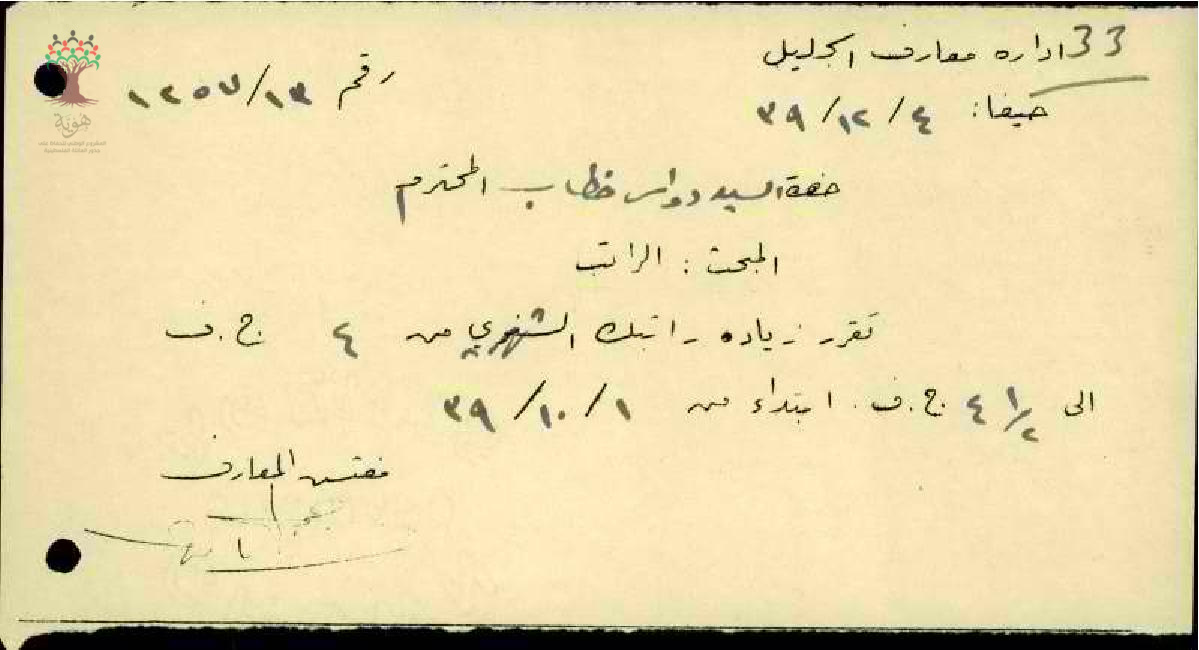 33
اداره معارف الجليل
رقم ١٢٥٧/١٣
حيفا: ٤/١٢/٣٩
حضرة السيد دواس خطاب المحترم
المبحث: الراتب
تقرر زياده راتبك الشهري من ٤ ج.ف
الى ٤ ١/٢ ج.ف. ابتداء من ١/١٠/٣٩
مفتش المعارف
هوية